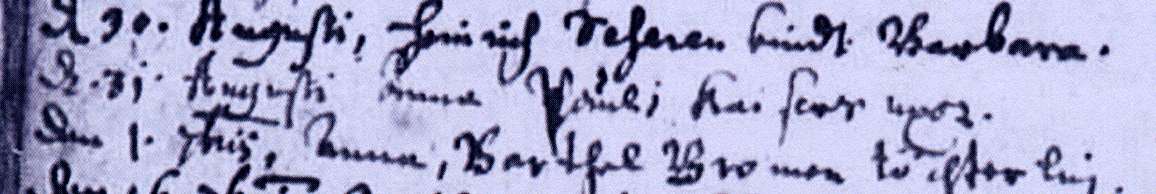 d 30. Augusti, Heinrich Scheren kindt Barbara.
d. 31. Augusti Anna Pauli Kaisers uxor.
den 1. 7bris, Anna, Barthel Bromen töchterlin.
den